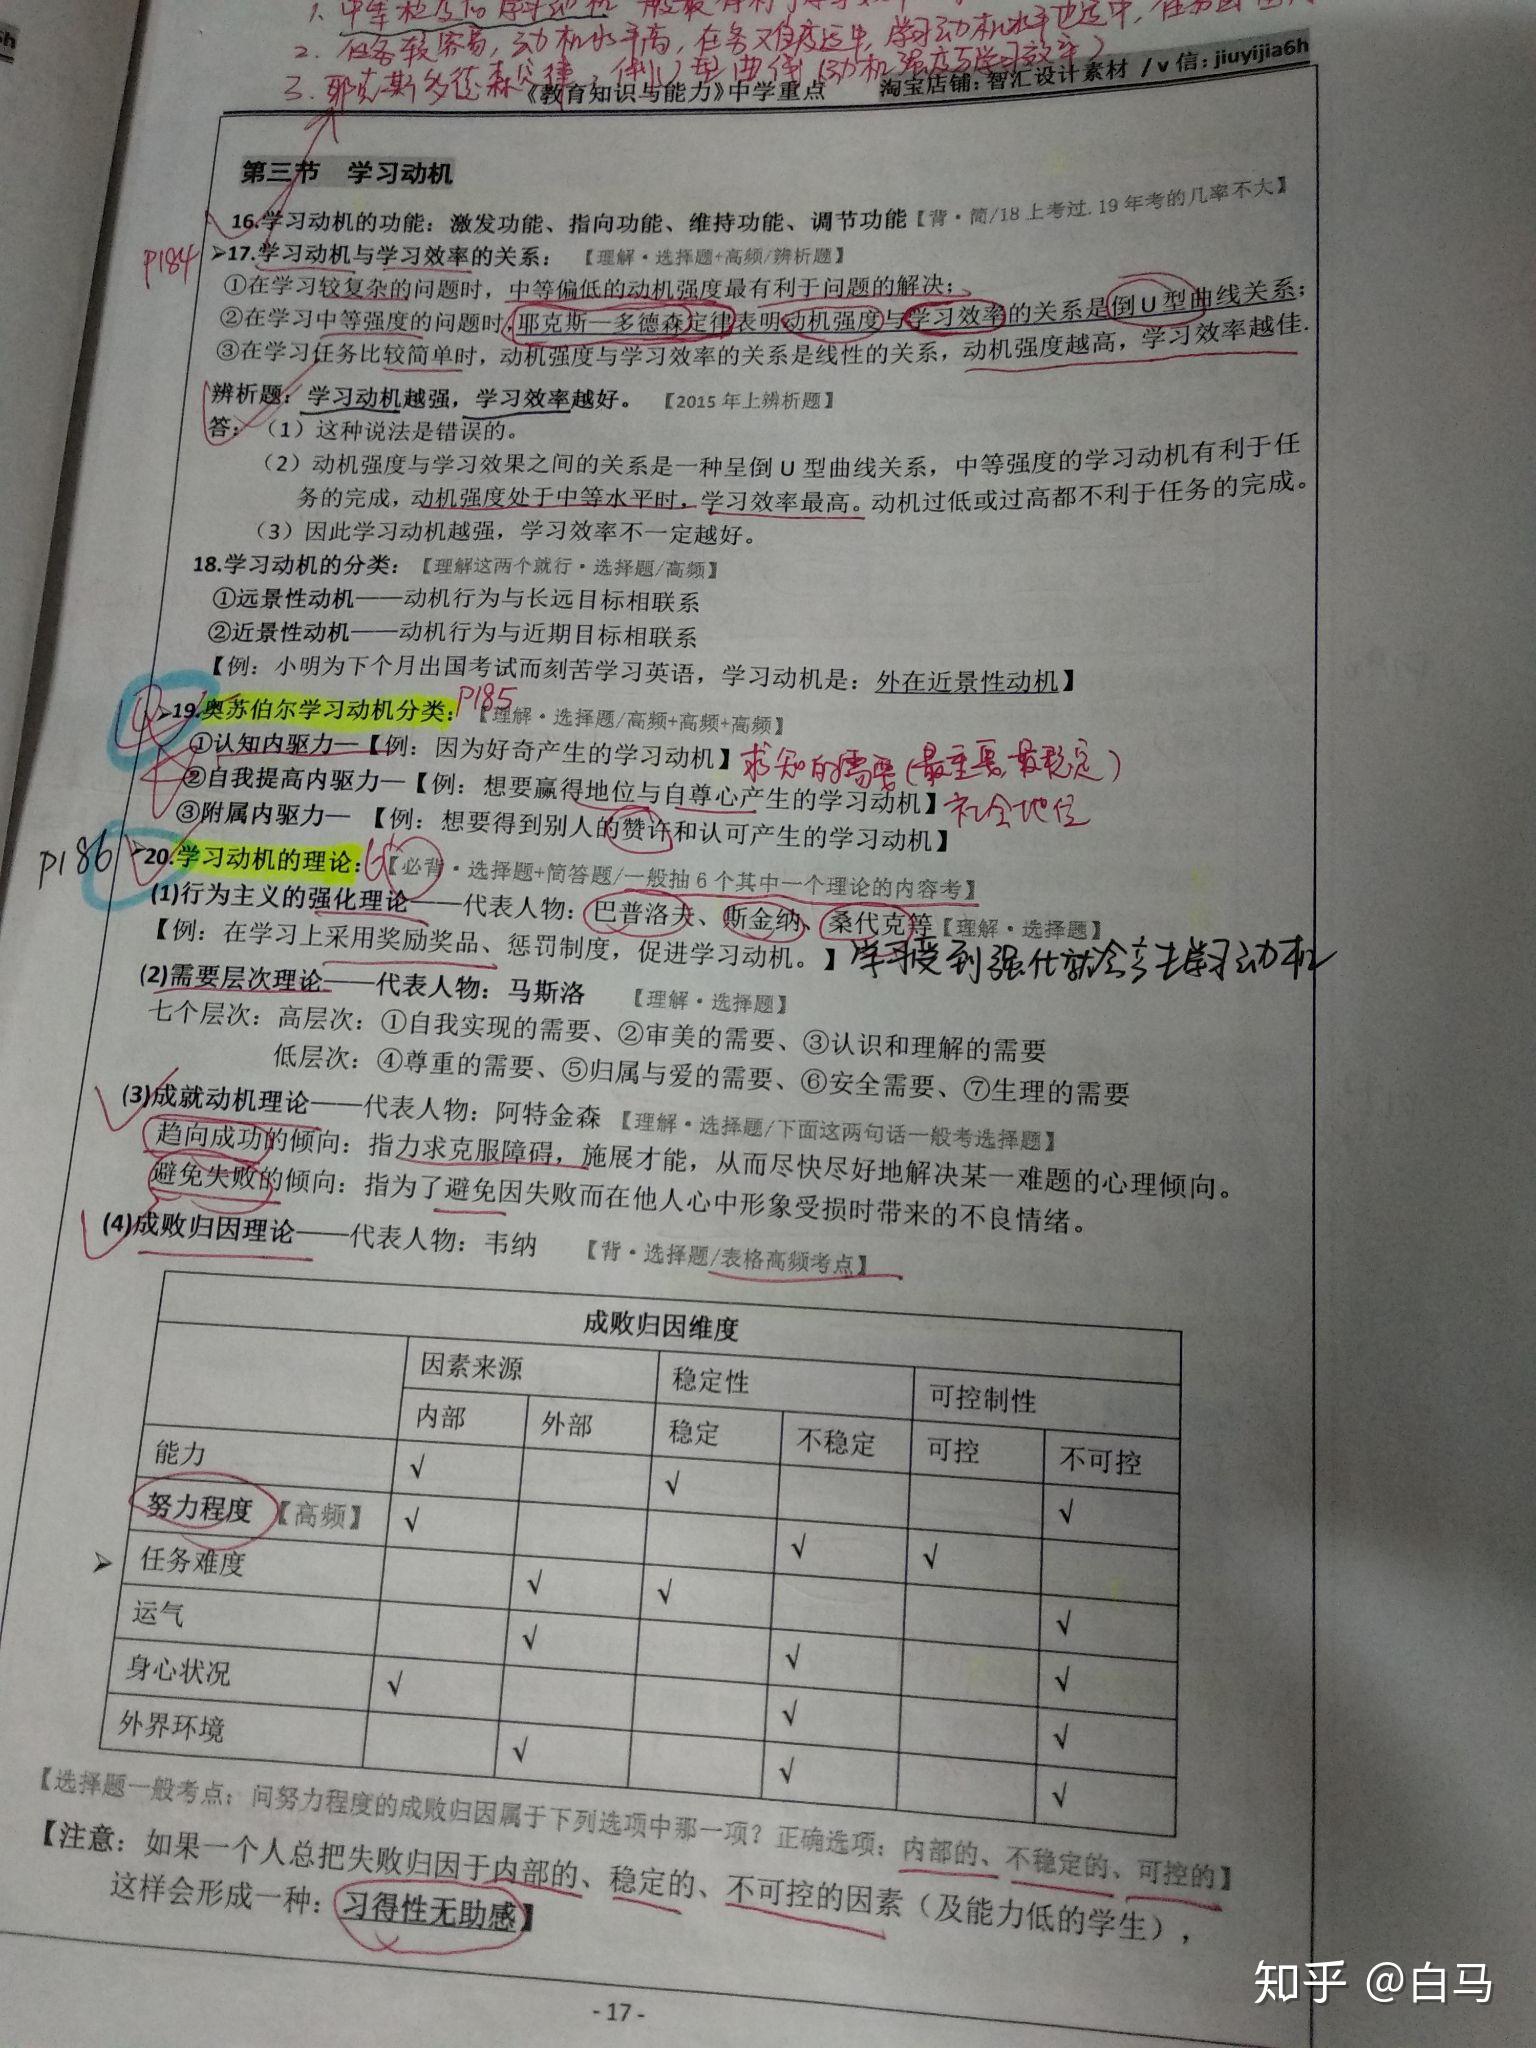 2. 任务较容易，动机水平高，任务难度适中，学习动机水平也适中，
3. 耶克斯多德森定律：倒U型曲线（动机强度与学习效率）
《教育知识与能力》中学重点 淘宝店铺：智汇设计素材 / v信：jiuyijia6h
第三节 学习动机
16.学习动机的功能：激发功能、指向功能、维持功能、调节功能【背·简/18上考过.19年考的几率不大】
P184 ➢17.学习动机与学习效率的关系：【理解·选择题+高频/辨析题】
①在学习较复杂的问题时，中等偏低的动机强度最有利于问题的解决；
②在学习中等强度的问题时，耶克斯—多德森定律表明动机强度与学习效率的关系是倒U型曲线关系；
③在学习任务比较简单时，动机强度与学习效率的关系是线性的关系，动机强度越高，学习效率越佳.
辨析题：学习动机越强，学习效率越好。【2015年上辨析题】
答：（1）这种说法是错误的。
（2）动机强度与学习效果之间的关系是一种呈倒U型曲线关系，中等强度的学习动机有利于任
务的完成，动机强度处于中等水平时，学习效率最高。动机过低或过高都不利于任务的完成。
（3）因此学习动机越强，学习效率不一定越好。
18.学习动机的分类：【理解这两个就行·选择题/高频】
①远景性动机——动机行为与长远目标相联系
②近景性动机——动机行为与近期目标相联系
【例：小明为下个月出国考试而刻苦学习英语，学习动机是：外在近景性动机】
➢19.奥苏伯尔学习动机分类：P185【理解·选择题/高频+高频+高频】
①认知内驱力—【例：因为好奇产生的学习动机】求知的需要（最重要、最稳定）
②自我提高内驱力—【例：想要赢得地位与自尊心产生的学习动机】社会地位
③附属内驱力— 【例：想要得到别人的赞许和认可产生的学习动机】
P186 ➢20.学习动机的理论：【必背·选择题+简答题/一般抽6个其中一个理论的内容考】
(1)行为主义的强化理论——代表人物：巴普洛夫、斯金纳、桑代克等【理解·选择题】
【例：在学习上采用奖励奖品、惩罚制度，促进学习动机。】学习受到强化就会产生学习动机
(2)需要层次理论——代表人物：马斯洛 【理解·选择题】
七个层次：高层次：①自我实现的需要、②审美的需要、③认识和理解的需要
低层次：④尊重的需要、⑤归属与爱的需要、⑥安全需要、⑦生理的需要
(3)成就动机理论——代表人物：阿特金森【理解·选择题/下面这两句话一般考选择题】
趋向成功的倾向：指力求克服障碍，施展才能，从而尽快尽好地解决某一难题的心理倾向。
避免失败的倾向：指为了避免因失败而在他人心中形象受损时带来的不良情绪。
(4)成败归因理论——代表人物：韦纳 【背·选择题/表格高频考点】
成败归因维度
因素来源 稳定性 可控制性
内部 外部 稳定 不稳定 可控 不可控
能力 √ √ √
努力程度【高频】 √ √ √
➢ 任务难度 √ √ √
运气 √ √ √
身心状况 √ √ √
外界环境 √ √ √
【选择题一般考点：问努力程度的成败归因属于下列选项中那一项？正确选项：内部的、不稳定的、可控的】
【注意：如果一个人总把失败归因于内部的、稳定的、不可控的因素（及能力低的学生），
这样会形成一种：习得性无助感】
- 17 -
知乎 @白马